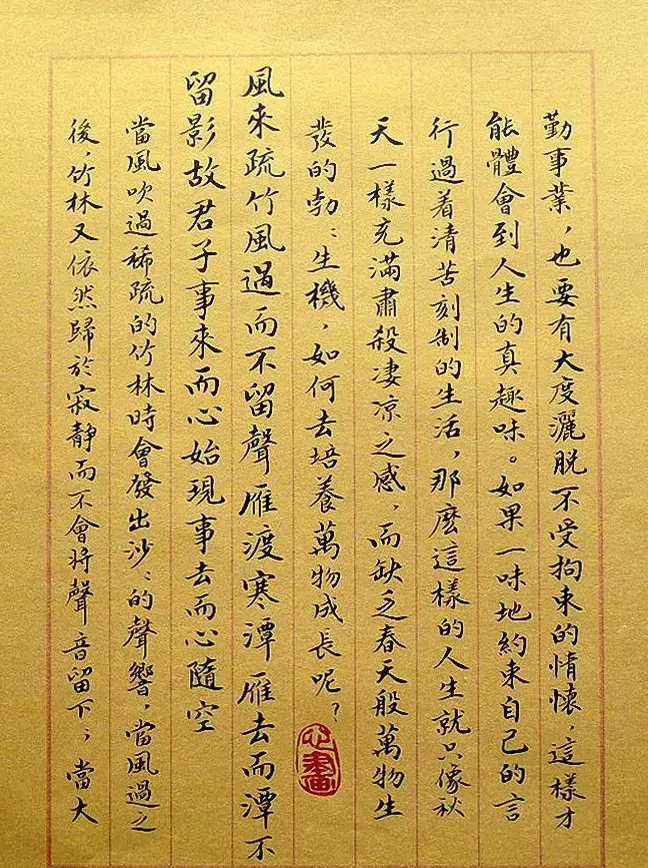 勤事業，也要有大度灑脱不受拘束的情懷、這樣才
能體會到人生的真趣味。如果一味地約束自己的言
行過着清苦刻制的生活，那麽這樣的人生就只像秋
天一樣充滿肅殺凄凉之感，而缺乏春天般萬物生
發的勃：生機，如何去培養萬物成長呢？
風來疏竹風過而不留聲雁渡寒潭雁去而潭不
留影故君子事來而心始現事去而心隨空
當風吹過稀疏的竹林時會發出沙：的聲響，當風過之
後，竹林又依然歸於寂靜而不會将聲音留下；當大